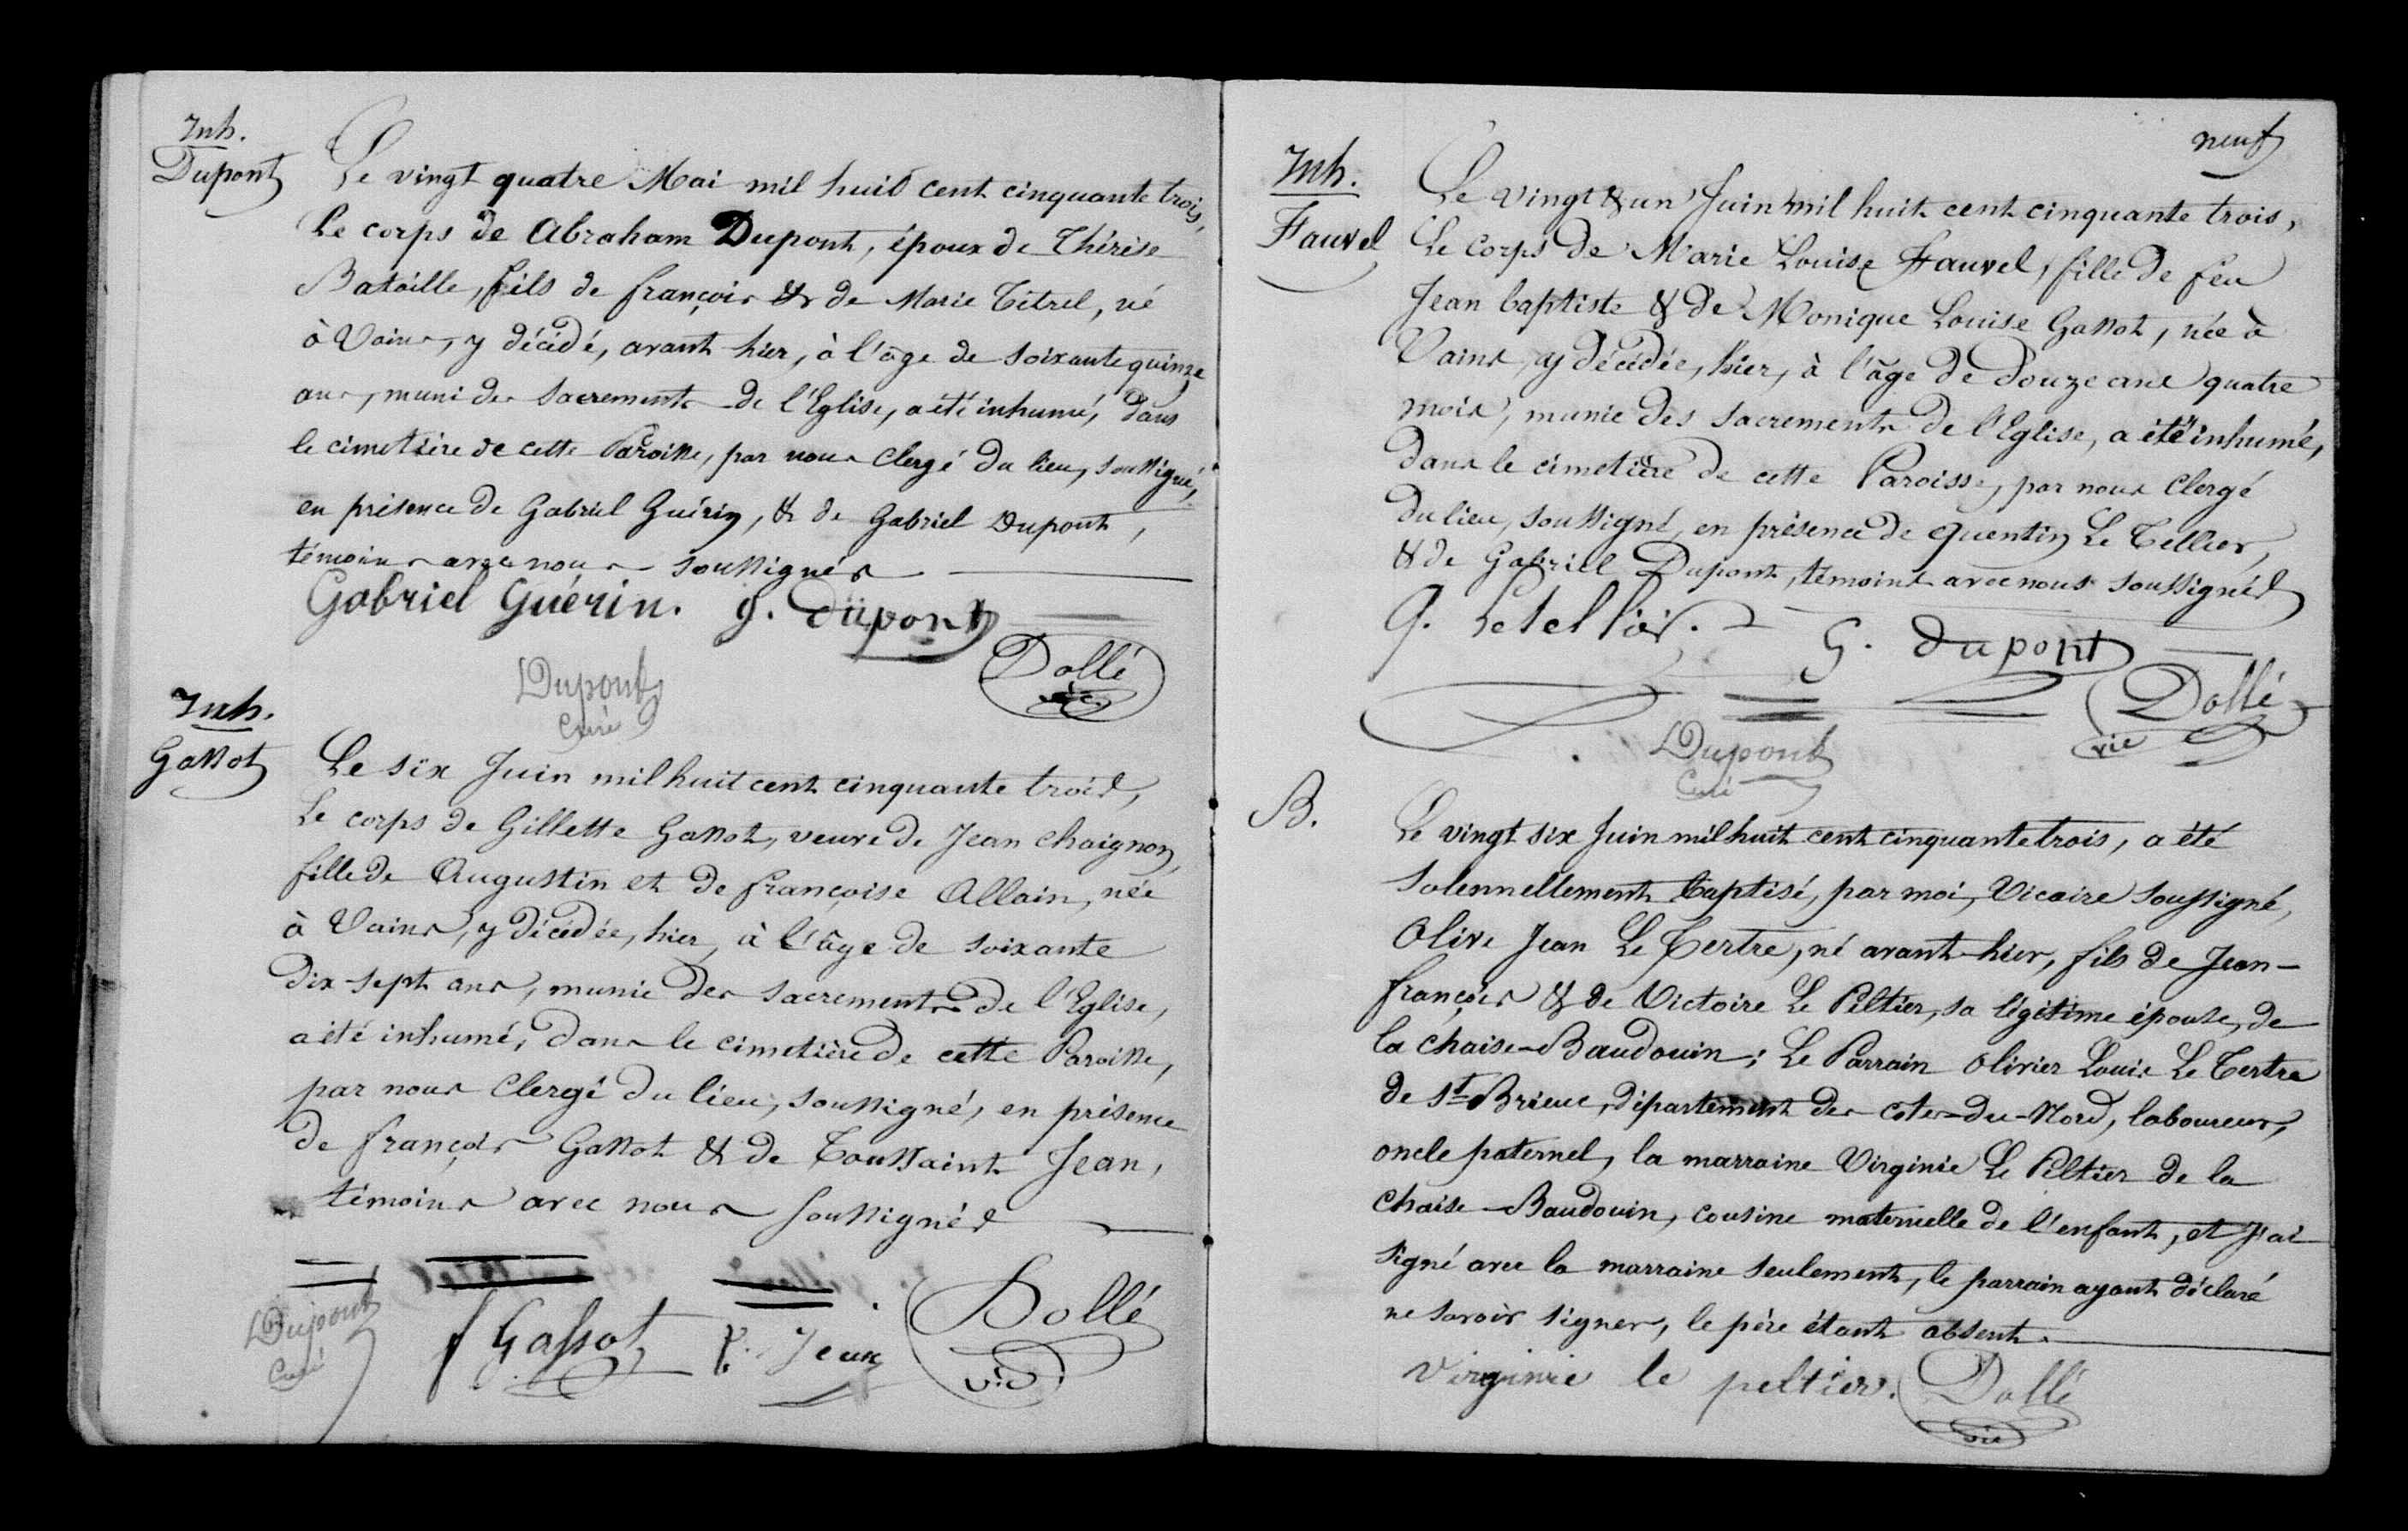 Inh.
Dupont
Le vingt quatre Mai mil huit cent cinquante trois,
Le corps de Abraham Dupont, époux de Thérèse
Bataille, fils de françois & de Marie Titrel, né
à Vains, y décédé, avant hier, à l'âge de soixante quinze
ans, muni des sacrements de l'Eglise, a été inhumé, dans
le cimetière de cette Paroisse, par nous Clergé du lieu, soussigné,
en présence de Gabriel Guérin, & de Gabriel Dupont,
témoins avec nous soussignés
Gabriel Guérin. g. dupont
Dupont
Curé
Dollé
vic
Inh.
Gassot
Le six Juin mil huit cent cinquante trois,
Le corps de Gillette Gassot, veuve de Jean Chaignon,
fille de Augustin et de françoise Allain, née
à Vains, y décédée, hier, à l'âge de soixante
dix-sept ans, munie des sacrements de l'Eglise,
a été inhumé, dans le cimetière de cette Paroisse,
par nous Clergé du lieu, soussigné, en présence
de françois Gassot & de Toussaint Jean,
témoins avec nous soussignés
Dupont
Curé
f Gassot
T. Jean
Dollé
vic
neuf
Inh.
Fauvel
Le vingt & un Juin mil huit cent cinquante trois,
Le corps de Marie Louise Fauvel, fille de feu
Jean baptiste & de Monique Louise Gassot, née à
Vains, y décédée, hier, à l'âge de douze ans quatre
mois, munie des sacrements de l'Eglise, a été inhumé,
dans le cimetière de cette Paroisse, par nous Clergé
du lieu, soussigné, en présence de Quentin Le Tellier,
& de Gabriel Dupont, témoins avec nous soussignés
Q. Letellier.
G. dupont
Dupont
Curé
Dollé
vic
B.
Le vingt six Juin mil huit cent cinquante trois, a été
solennellement baptisé, par moi, Vicaire soussigné,
Olive Jean Le Tertre, né avant-hier, fils de Jean-
françois & de Victoire Le Peltier, sa légitime épouse, de
la chaise-Baudouin; Le Parrain Olivier Louis Le Tertre
de St-Brieuc, département des cotes-du-Nord, laboureur,
oncle paternel, la marraine Virginie Le Peltier de la
Chaise-Baudouin, cousine maternelle de l'enfant, et J'ai
signé avec la marraine seulement, le parrain ayant déclaré
ne savoir signer, le père étant absent.
Virginie le peltier.
Dollé
vic